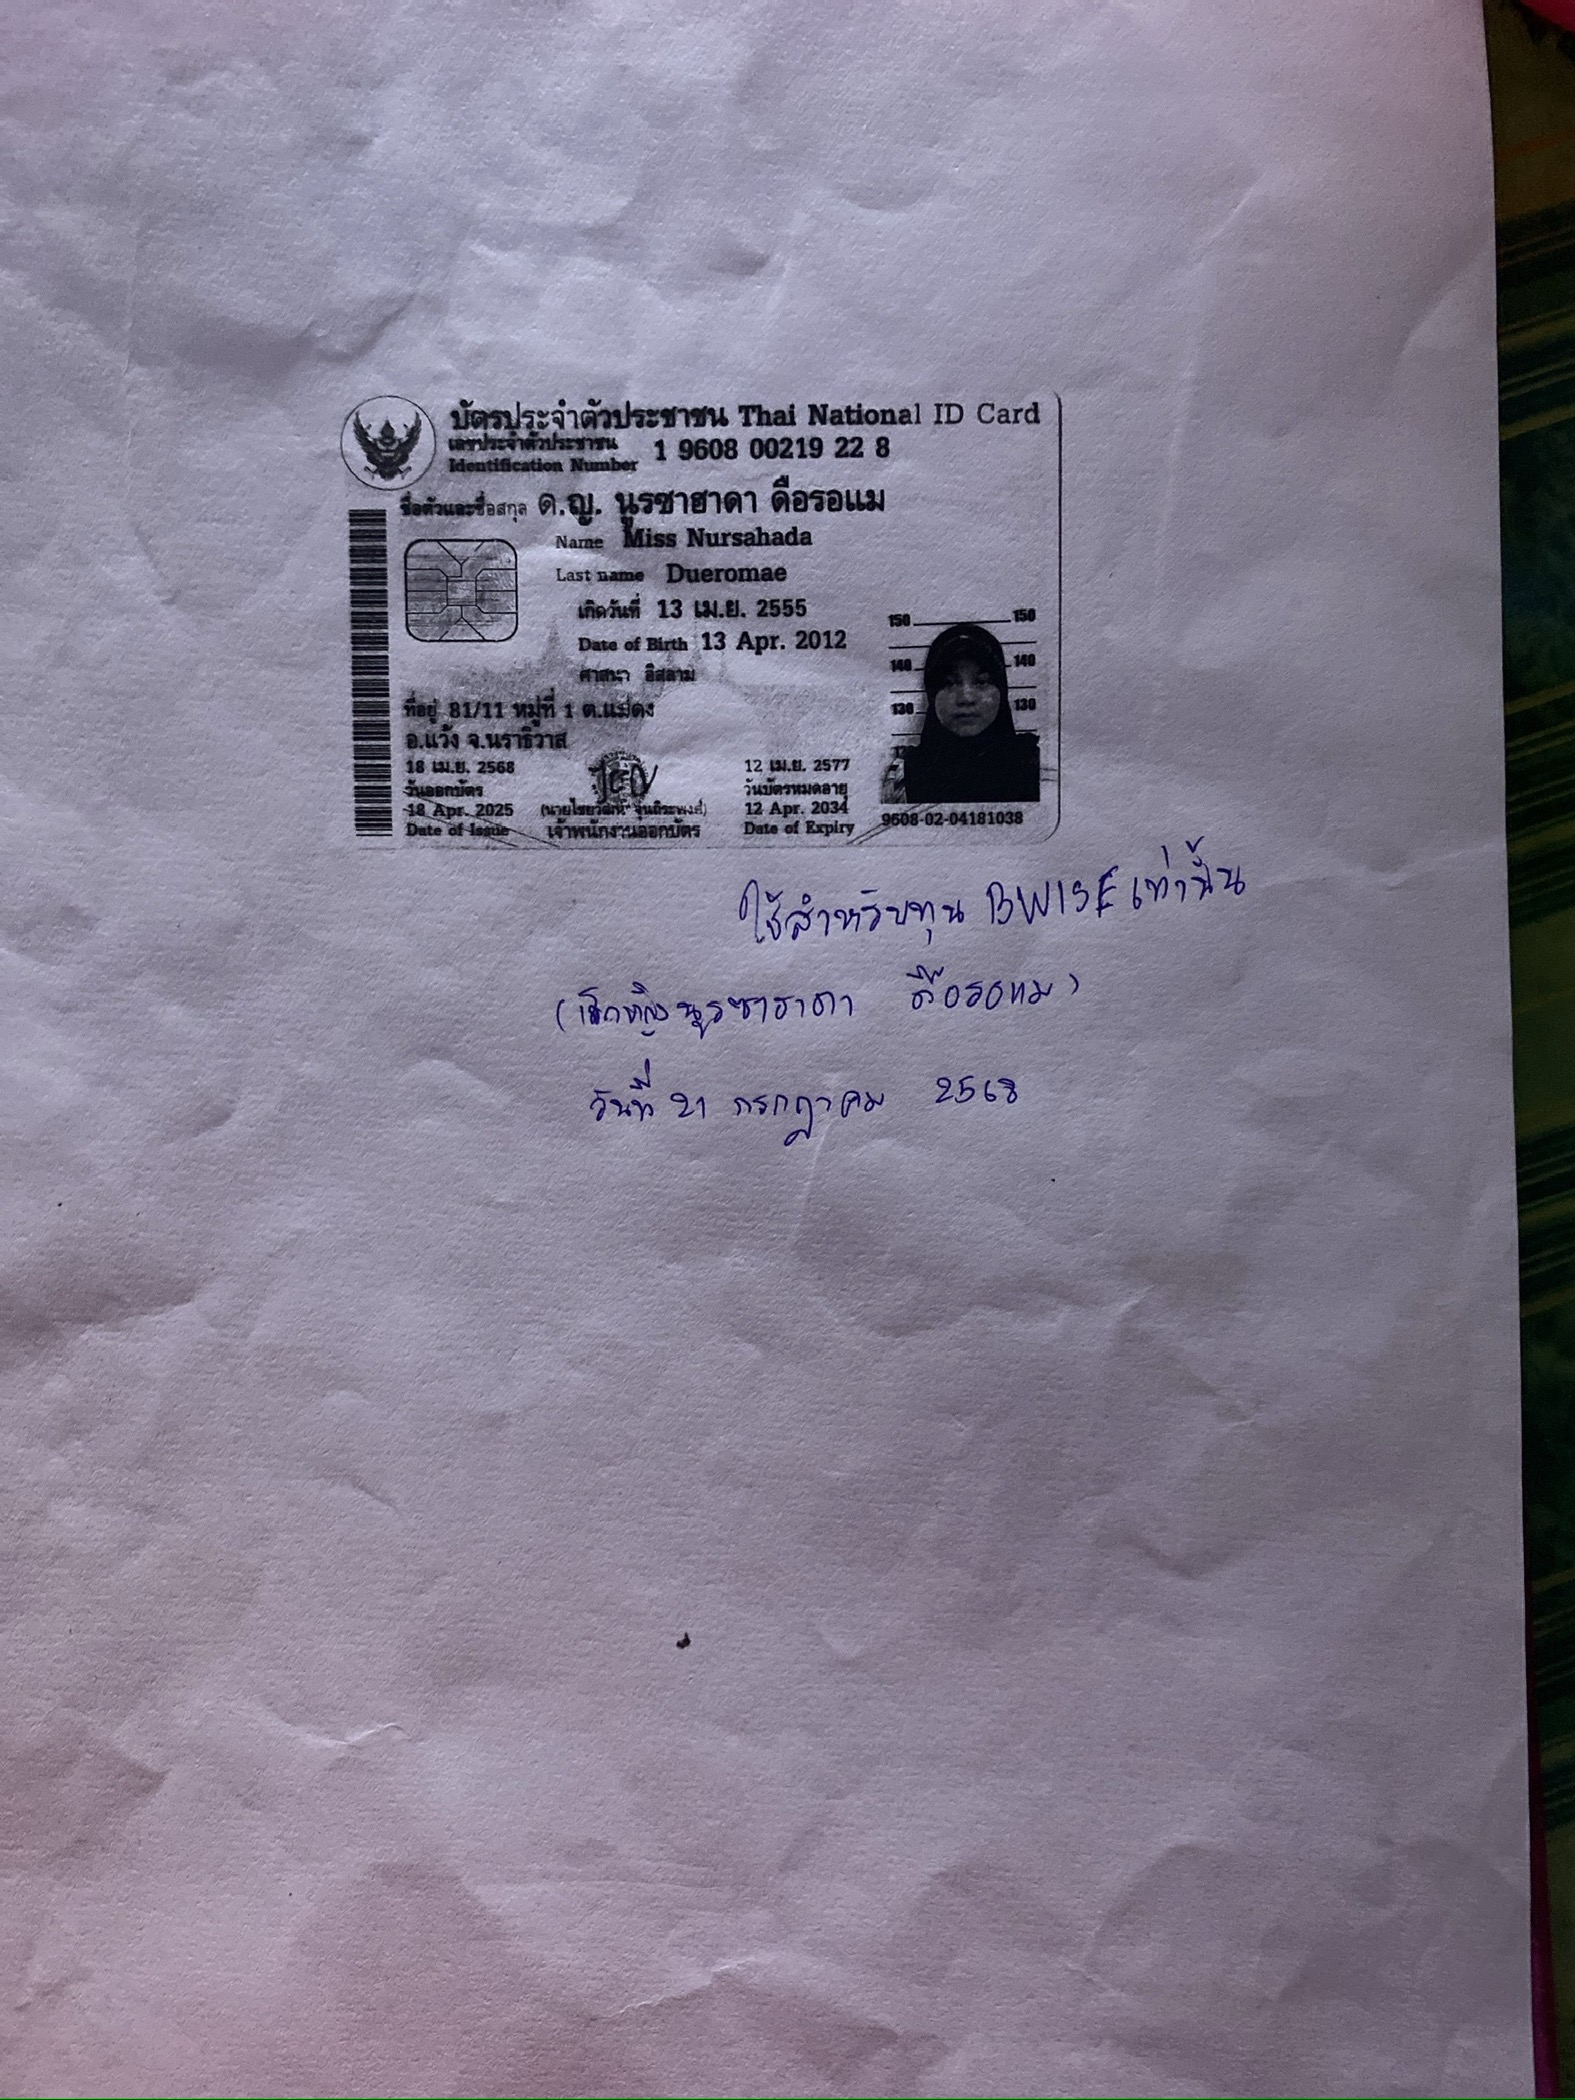 บัตรประจำตัวประชาชน Thai National ID Card
เลขประจำตัวประชาชน
Identification Number 1 9608 00219 22 8
ชื่อตัวและชื่อสกุล ด.ญ. นูรซาฮาดา ดือรอแม
Name Miss Nursahada
Last name Dueromae
เกิดวันที่ 13 เม.ย. 2555
Date of Birth 13 Apr. 2012
ศาสนา อิสลาม
ที่อยู่ 81/11 หมู่ที่ 1 ต.แม่ดง
อ.แว้ง จ.นราธิวาส
18 เม.ย. 2568
วันออกบัตร
18 Apr. 2025
Date of Issue
เจ้าพนักงานออกบัตร
12 เม.ย. 2577
วันบัตรหมดอายุ
12 Apr. 2034
Date of Expiry
150 150
140 140
130 130
9608-02-04181038
ใช้สำหรับทุน BWISE เท่านั้น
(เด็กหญิงนูรซาฮาดา ดือรอแม)
วันที่ 21 กรกฎาคม 2568